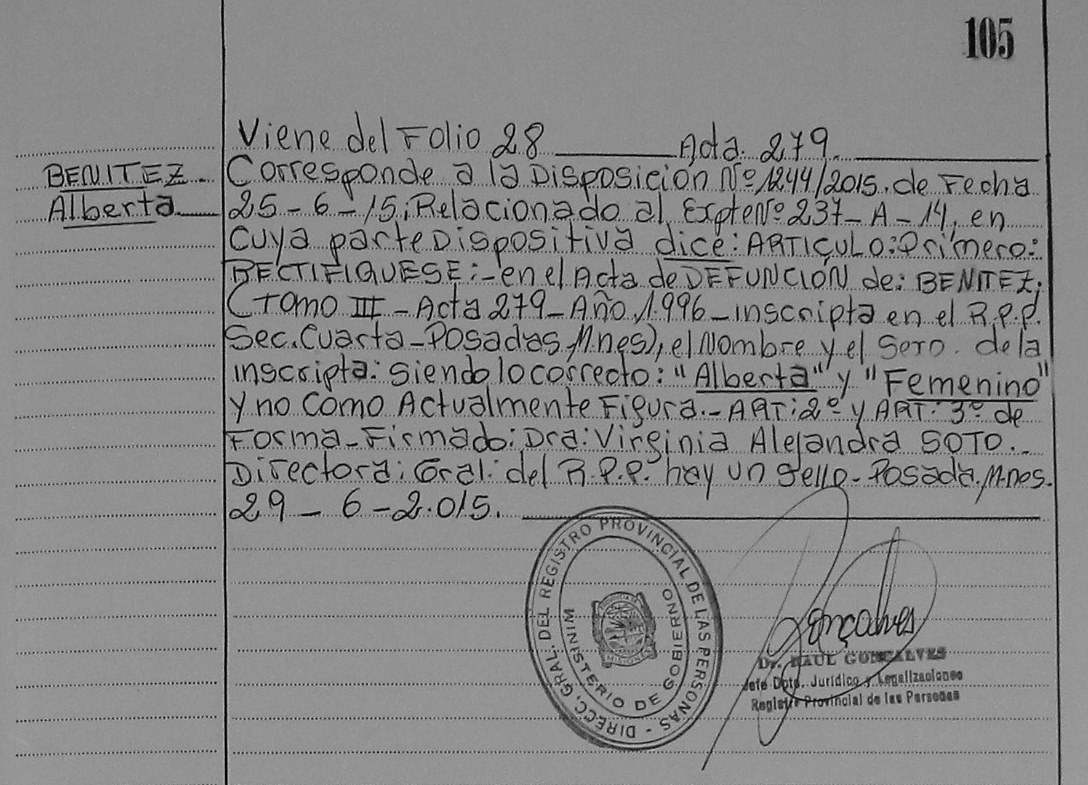 105
Viene del Folio 28 Acta. 279.
BENITEZ Corresponde a la Disposición Nº 1244/2015. de Fecha
Alberta 25-6-15; Relacionado al ExpteNº 237-A-14, en
cuya parte Dispositiva dice: ARTICULO: Primero:
RECTIFIQUESE:- en el Acta de DEFUNCIÓN de: BENITEZ;
(Tomo III - Acta 279 - Año 1.996 - inscripta en el R.P.P.
Sec. Cuarta - Posadas, Mnes), el Nombre y el Sexo. de la
inscripta: Siendo lo correcto: "Alberta" y "Femenino"
y no como Actualmente Figura.- ART: 2º y ART: 3º de
Forma - Firmado: Dra: Virginia Alejandra SOTO.-
Directora: Gral: del R.P.P. hay un Sello - Posada. Mnes.
29 - 6 - 2.015.
DIRECC. GRAL. DEL REGISTRO PROVINCIAL DE LAS PERSONAS -
MINISTERIO DE GOBIERNO
Gonçalves
Dr. RAUL GONCALVES
Jefe Dpto. Jurídico y Legalizaciones
Registro Provincial de las Personas